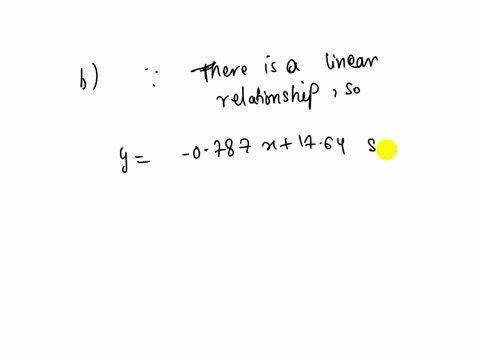 b) ∵ There is a linear
relationship, so
y = -0.787 x + 17.64 s